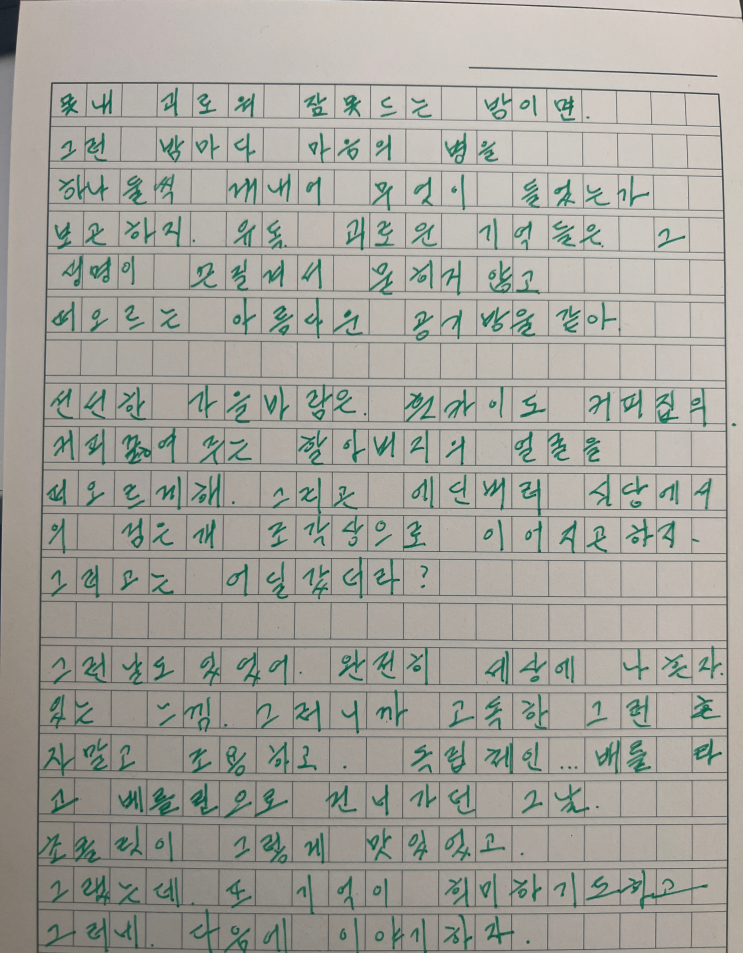 못내 괴로워 잠못드는 밤이면.
그런 밤마다 마음의 병을
하나 둘씩 꺼내어 무엇이 들었는가
보곤하지. 유독 괴로운 기억들은 그
생명이 끈질겨서 원하지 않고
떠오르는 아름다운 공기방울 같아.
선선한 가을바람은. 헌자이도 커피집의
커피 볶여 주는 할아버지의 얼굴을
떠오르게해. 그리곤 에딘버러 식당에서
의 검은개 조각상으로 이어지곤하지.
그리고는 어딜갔더라?
그런날도 있었어. 완전히 세상에 나 혼자.
있는 느낌. 그러니까 고독한 그런 혼
자말고 조용하고. 독립적인... 배를 타
고 베를린으로 건너가던 그날.
초콜릿이 그렇게 맛있었고.
그랬는데. 또 기억이 희미하기도하고
그러네. 다음에 이야기하자.